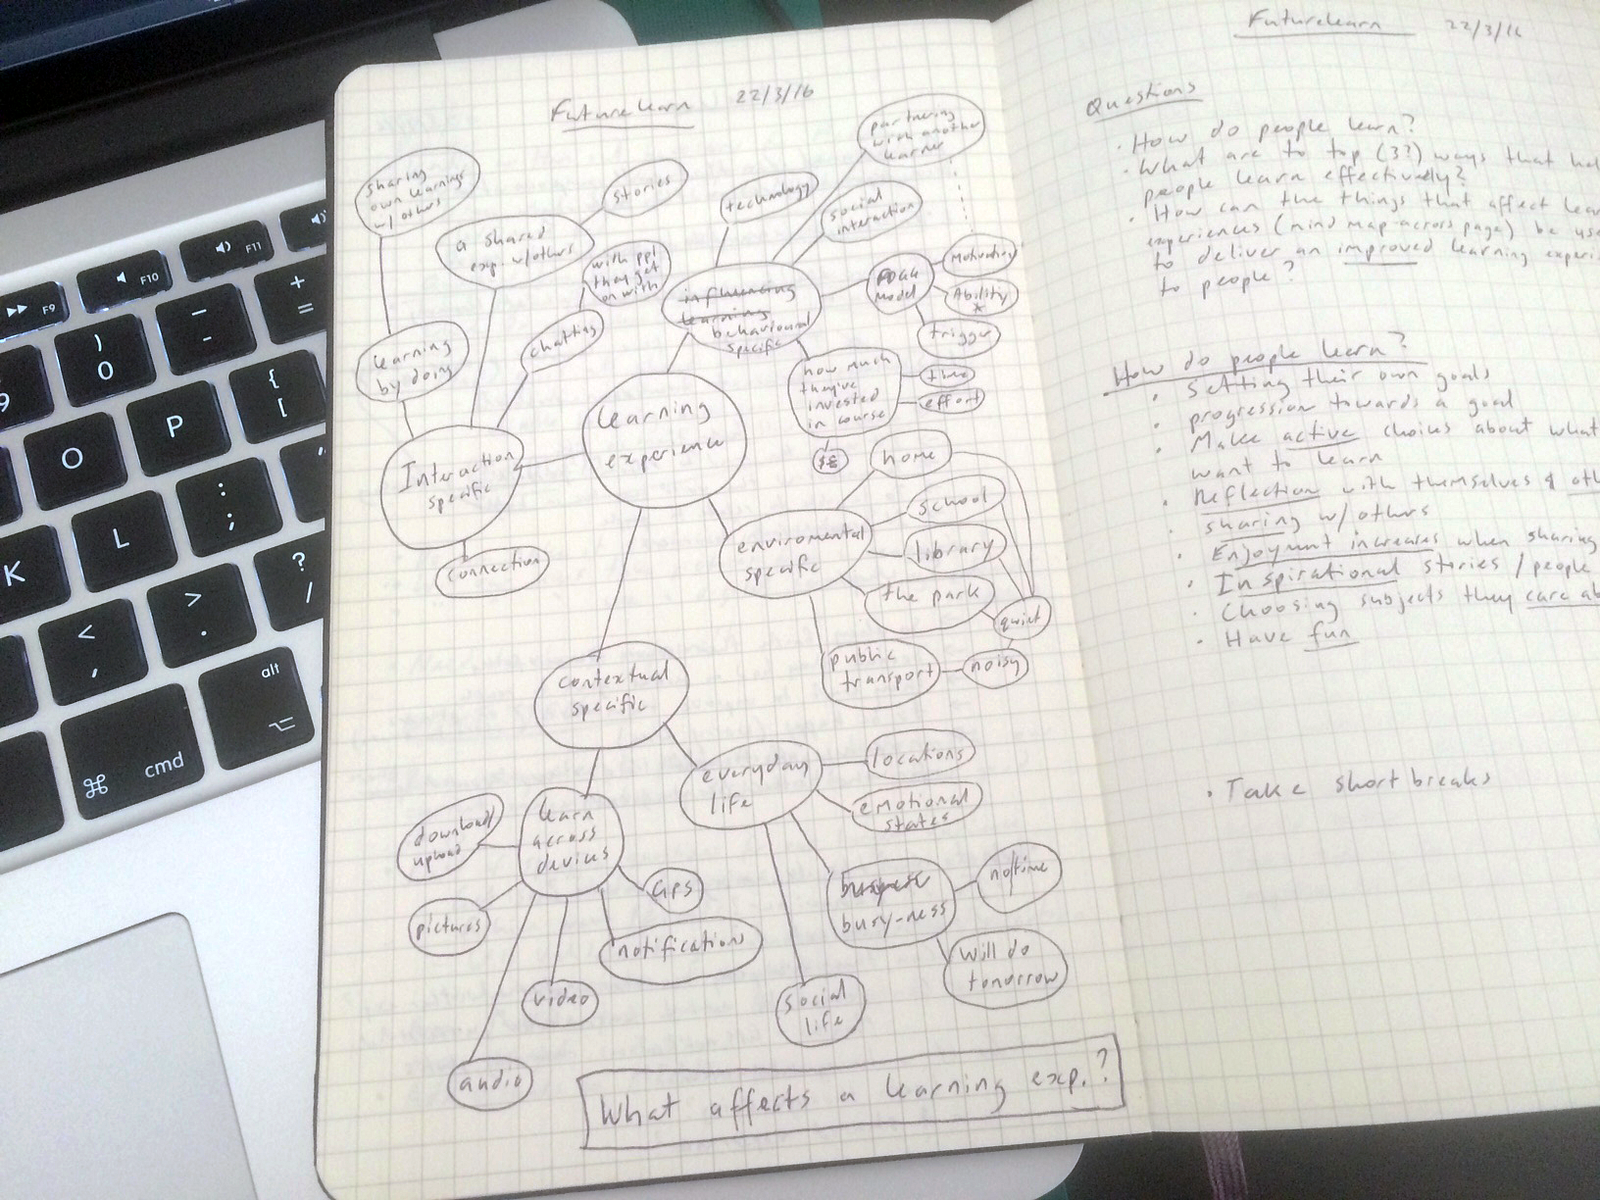 Futurelearn 22/3/16
sharing
own learnings
w/others
a shared
exp. w/others
stories
with ppl
they get
on with
chatting
learning
by doing
Interaction
specific
connection
learning
experience
technology
partnering
with another
learner
social
interaction
influencing
learning
behavioural
specific
model
Motivation
Ability
*
trigger
how much
they've
invested
in course
time
effort
$£
enviromental
specific
home
school
library
the park
quiet
public
transport
noisy
contextual
specific
everyday
life
locations
emotional
states
busy-ness
no time
will do
tomorrow
social
life
learn
across
devices
download/
upload
pictures
audio
video
notification
GPS
What affects a learning exp.?
Futurelearn 22/3/16
Questions
· How do people learn?
· What are to top (3?) ways that
people learn effectively?
· How can the things that affect
experiences (mind map across page) be
to deliver an improved learning
to people?
How do people learn?
· Setting their own goals
· progression towards a goal
· Make active choices about what
want to learn
· Reflection with themselves &
· sharing w/others
· Enjoyment increases when sharing
· Inspirational stories / people
· Choosing subjects they care
· Have fun
· Take short breaks
F9
F10
F11
9
)
0
-
+
=
O
P
{
[
K
L
:
;
<
,
>
.
?
/
⌘ cmd
alt
⌥